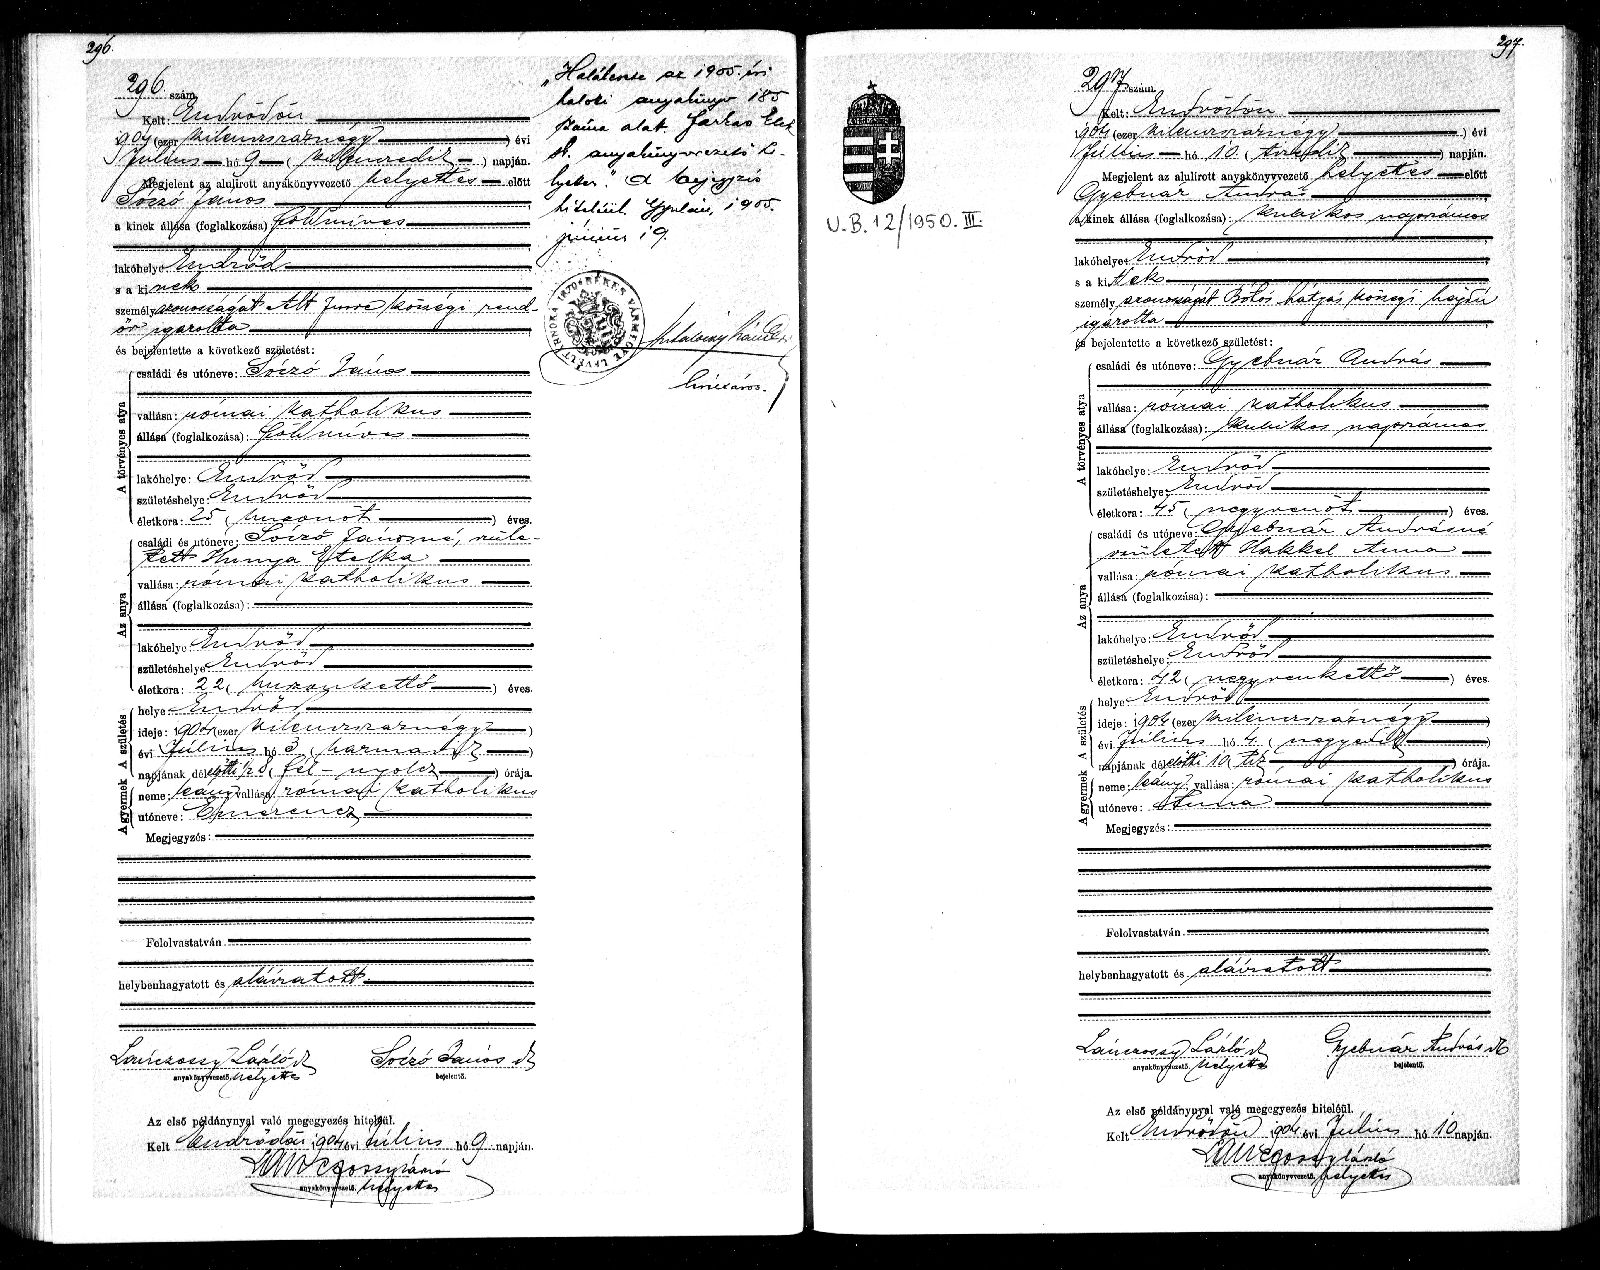 296.
296. szám.
Kelt: Endrődön
1904 (ezer kilencszáznégy) évi
Július hó 9 (kilencedik) napján.
Megjelent az alulirott anyakönyvvezető helyettes előtt
Sóczó János
a kinek állása (foglalkozása): földmüves
lakóhelye Endrőd
s a ki nek
személyazonosságát Alt Imre községi rend-
őr igazolta
és bejelentette a következő születést:
A törvényes atya
családi és utóneve: Sóczó János
vallása: római katholikus
állása (foglalkozása): földmüves
lakóhelye: Endrőd
születéshelye: Endrőd
életkora: 25 (huszonöt) éves.
Az anya
családi és utóneve: Sóczó Jánosné, szüle-
tett Hunya Etelka
vallása: római katholikus
állása (foglalkozása):
lakóhelye: Endrőd
születéshelye Endrőd
életkora: 22 (huszonkettő) éves.
A születés
helye Endrőd
ideje: 1904 (ezer kilencszáznégy)
évi Július hó 3 (harmadik)
napjának délelőtti ½8 (fél-nyolcz) órája.
A gyermek
neme: leány vallása: római katholikus
utóneve: Emerencz
Megjegyzés:
Felolvastatván
helybenhagyatott és aláiratott
Lánczossy László sk
anyakönyvvezető. helyettes
Sóczó János sk
bejelentő.
Az első példánynyal való megegyezés hiteléül.
Kelt Endrődön 1904 évi Július hó 9 napján.
Lánczossy László
anyakönyvvezető. helyettes
"Halálesete az 1905. évi
haloti anyakönyv 185
száma alatt. Farkas Elek
sk. anyakönyvvezető h-
lyettes." A bejegyzés
hiteléül. Gyulán, 1905.
június 19.
BÉKÉS VÁRMEGYE LEVÉLTÁRNOKA 1870
297.
297. szám.
Kelt: Endrődön
1904 (ezer kilencszáznégy) évi
Július hó 10 (tizedik) napján.
Megjelent az alulirott anyakönyvvezető helyettes előtt
Gyebnár András
a kinek állása (foglalkozása): kubikos napszámos
lakóhelye: Endrőd
s a ki Nek
személyazonosságát Bótos Mátyás községi hajdu
igazolta
és bejelentette a következő születést:
A törvényes atya
családi és utóneve: Gyebnár András
vallása: római katholikus
állása (foglalkozása): kubikos napszámos
lakóhelye: Endrőd
születéshelye: Endrőd
életkora: 45 (negyvenöt) éves.
Az anya
családi és utóneve: Gyebnár Andrásné
született Hakkel Anna
vallása: római katholikus
állása (foglalkozása):
lakóhelye: Endrőd
születéshelye: Endrőd
életkora: 42 (negyvenkettő) éves.
A születés
helye Endrőd
ideje: 1904 (ezer kilencszáznégy)
évi Július hó 4 (negyedik)
napjának délelőtti 10 (tiz) órája.
A gyermek
neme: leány vallása: római katholikus
utóneve: Anna
Megjegyzés:
Felolvastatván
helybenhagyatott és aláiratott
Lánczossy László sk
anyakönyvvezető. helyettes
Gyebnár András sk
bejelentő.
Az első példánynyal való megegyezés hiteléül.
Kelt Endrődön 1904 évi Július hó 10 napján.
Lánczossy László
anyakönyvvezető. helyettes
U.B. 12/1950. III.